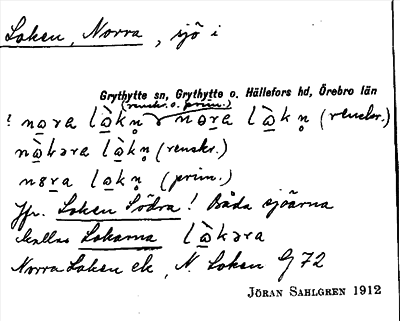 Loken, Norra, sjö i
Grythytte sn, Grythytte o. Hällefors hd, Örebro län
(renskr. o. prim.)
! nora lò̱kn̥ nora lò̱kn̥ (renskr.)
nò̱kəra lò̱kn̥ (renskr.)
nora lokn̥ (prim.)
Jfr. Loken Södra! Båda sjöarna
kallas Lokarna lò̱kəra
Norra Loken ek, N. Loken G 72
JÖRAN SAHLGREN 1912